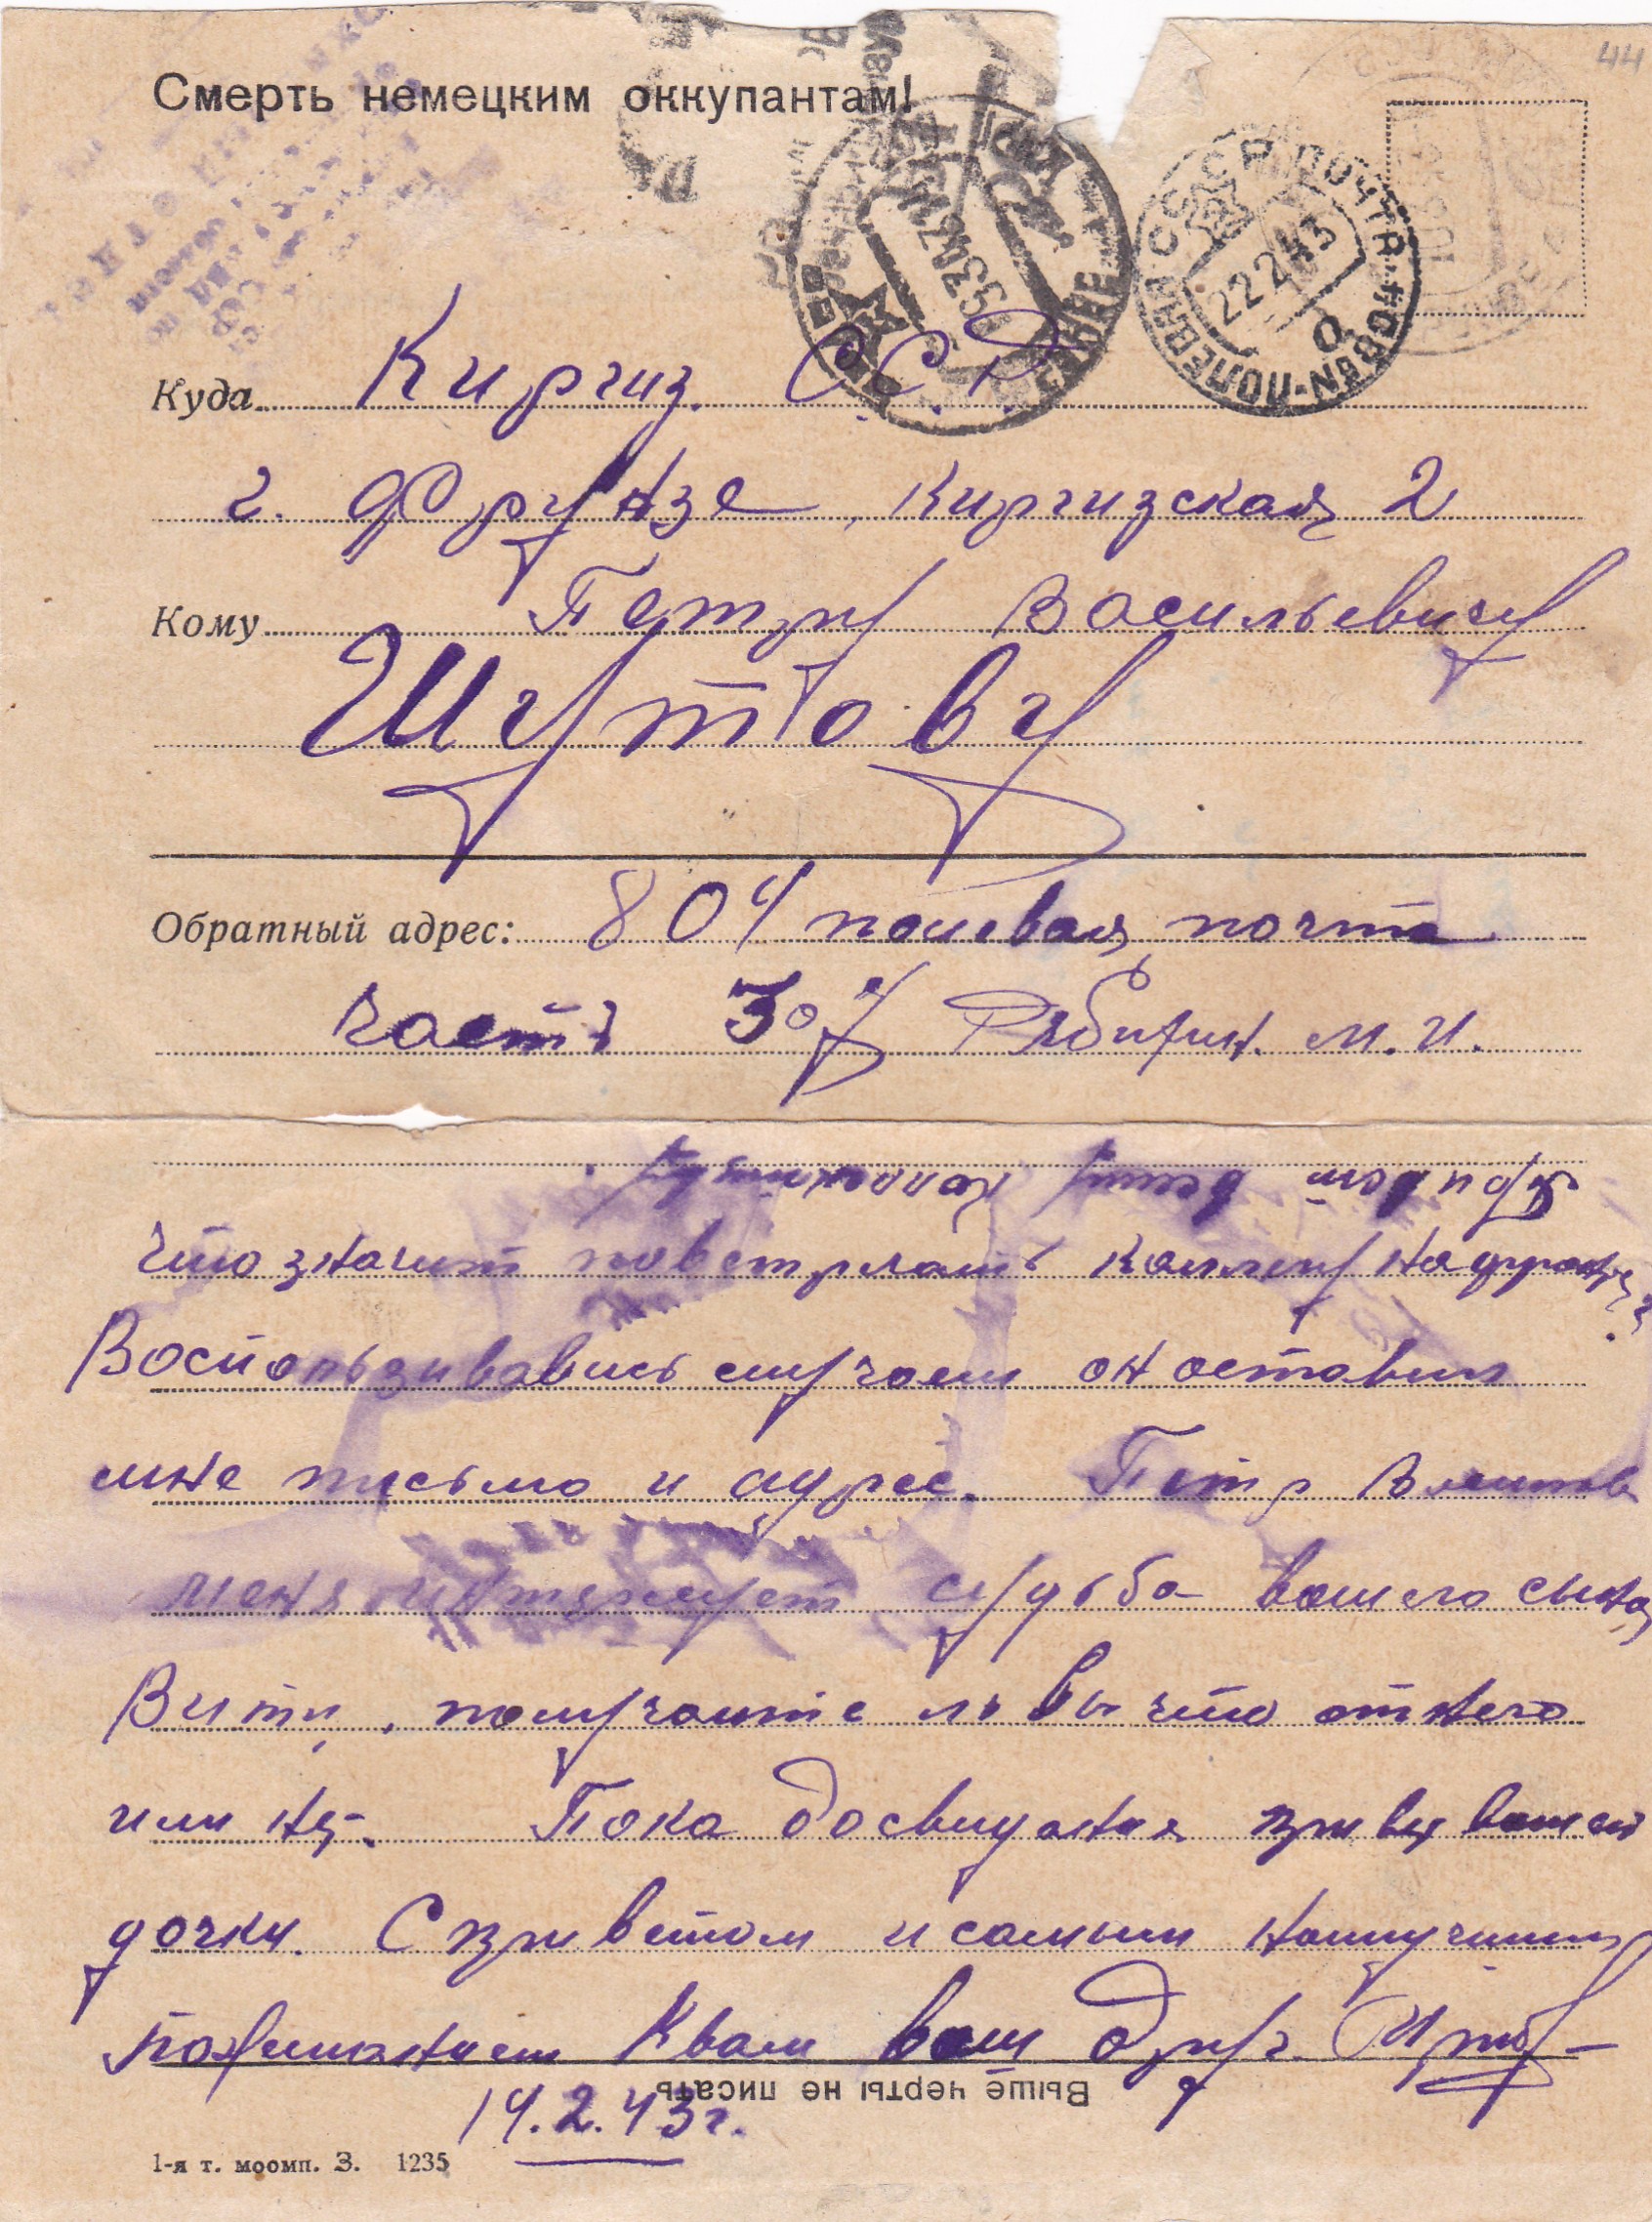 Смерть немецким оккупантам!
44
СССР ПОЧТА
22 2 43
ПОЛЕВАЯ
Куда Киргиз. С.С.Р.
г. Фрунзе, Киргизская 2
Кому Петру Васильевичу
Шутову
Обратный адрес: 804 полевая почта
часть 307 М.И.
что значит повстречать коллегу на фронте
Воспользивавись случаем он оставил
мне письмо и адрес. Петр
меня интересует судьба вашего сына
Вити, получаите ли вы что от него
или нет. Пока досвидания привет вашей
дочки. С приветом и самым наилучшим
пожеланием к вам ваш друг
Выше черты не писать
14.2.43г.
1-я т. моомп. З. 1235